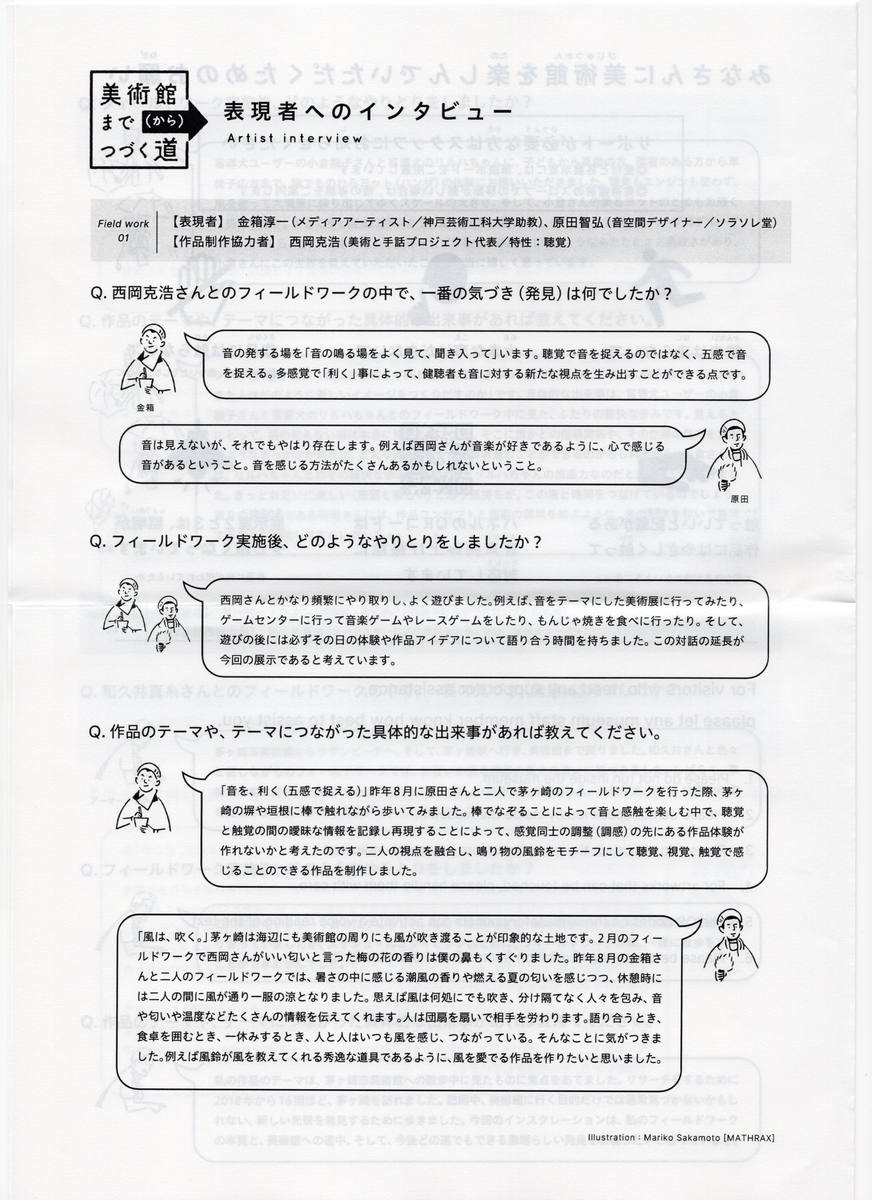 美術館
まで(から)
つづく道
表現者へのインタビュー
Artist interview
Field work
01
【表現者】　金箱淳一(メディアアーティスト／神戸芸術工科大学助教)、原田智弘(音空間デザイナー／ソラソレ堂)
【作品制作協力者】　西岡克浩(美術と手話プロジェクト代表／特性：聴覚)
Q. 西岡克浩さんとのフィールドワークの中で、一番の気づき(発見)は何でしたか？
音の発する場を「音の鳴る場をよく見て、聞き入って」います。聴覚で音を捉えるのではなく、五感で音
を捉える。多感覚で「利く」事によって、健聴者も音に対する新たな視点を生み出すことができる点です。
金箱
音は見えないが、それでもやはり存在します。例えば西岡さんが音楽が好きであるように、心で感じる
音があるということ。音を感じる方法がたくさんあるかもしれないということ。
原田
Q. フィールドワーク実施後、どのようなやりとりをしましたか？
西岡さんとかなり頻繁にやり取りし、よく遊びました。例えば、音をテーマにした美術展に行ってみたり、
ゲームセンターに行って音楽ゲームやレースゲームをしたり、もんじゃ焼きを食べに行ったり。そして、
遊びの後には必ずその日の体験や作品アイデアについて語り合う時間を持ちました。この対話の延長が
今回の展示であると考えています。
Q. 作品のテーマや、テーマにつながった具体的な出来事があれば教えてください。
「音を、利く(五感で捉える)」昨年8月に原田さんと二人で茅ヶ崎のフィールドワークを行った際、茅ヶ
崎の塀や垣根に棒で触れながら歩いてみました。棒でなぞることによって音と感触を楽しむ中で、聴覚
と触覚の間の曖昧な情報を記録し再現することによって、感覚同士の調整(調感)の先にある作品体験が
作れないかと考えたのです。二人の視点を融合し、鳴り物の風鈴をモチーフにして聴覚、視覚、触覚で感
じることのできる作品を制作しました。
「風は、吹く。」茅ヶ崎は海辺にも美術館の周りにも風が吹き渡ることが印象的な土地です。2月のフィー
ルドワークで西岡さんがいい匂いと言った梅の花の香りは僕の鼻もくすぐりました。昨年8月の金箱さ
んと二人のフィールドワークでは、暑さの中に感じる潮風の香りや燃える夏の匂いを感じつつ、休憩時に
は二人の間に風が通り一服の涼となりました。思えば風は何処にでも吹き、分け隔てなく人々を包み、音
や匂いや温度などたくさんの情報を伝えてくれます。人は団扇を扇いで相手を労わります。語り合うとき、
食卓を囲むとき、一休みするとき、人と人はいつも風を感じ、つながっている。そんなことに気がつきま
した。例えば風鈴が風を教えてくれる秀逸な道具であるように、風を愛でる作品を作りたいと思いました。
Illustration : Mariko Sakamoto [MATHRAX]